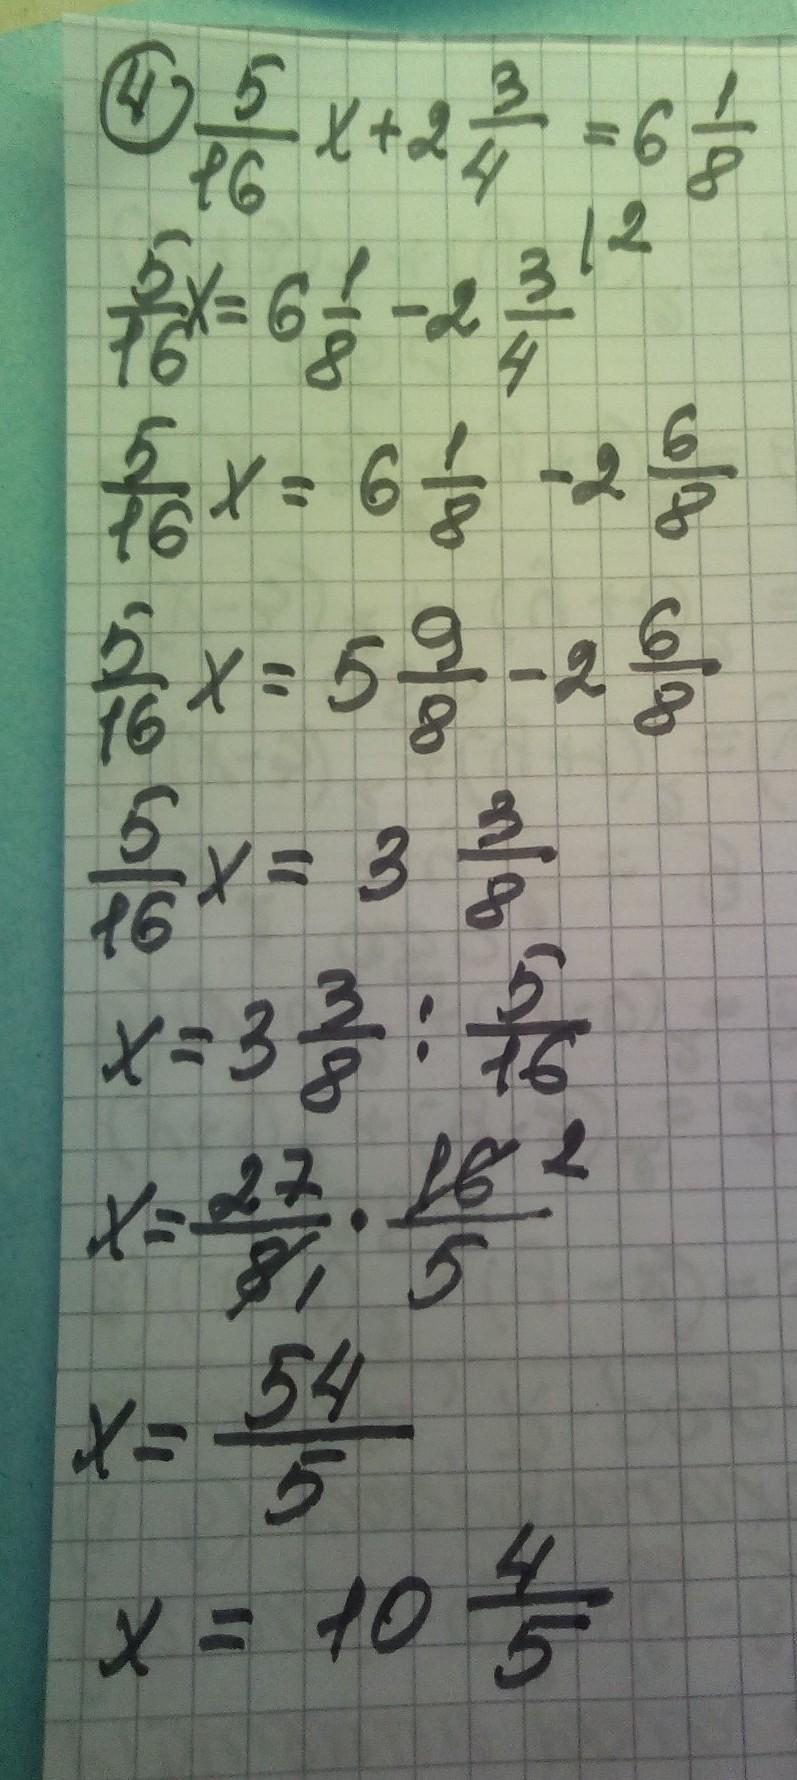 ④ 5/16 x + 2 3/4 = 6 1/8
5/16 x = 6 1/8 - 2 3/4 |2
5/16 x = 6 1/8 - 2 6/8
5/16 x = 5 9/8 - 2 6/8
5/16 x = 3 3/8
x = 3 3/8 : 5/16
x = 27/8 1 · 16 2/5
x = 54/5
x = 10 4/5